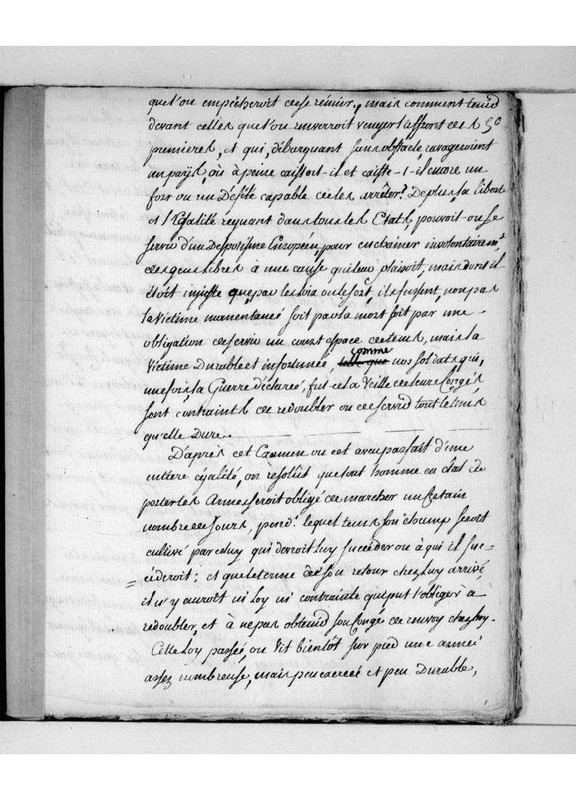 que l'on empêcheroit de se réunir, mais comment tenir
devant celles que l'on enverroit venger l'affront des 50
premieres, et qui, débarquant sans obstacle, ravageroient
un pays, où à peine existoit-il et existe-t-il encore un
fort ou un Défilé capable de les arrêter? De plus, la liberté
et l'Egalité regnant dans tous les Etats, pouvoit-on se
servir d'un Despotisme Européen, pour enchainer involontairemt.
des gens libres à une cause qui leur plaisoit, mais dont il
étoit injuste que, par les loix ou le sort, ils fussent, non pas
la victime momentanée soit par la mort soit par une
obligation de servir un court espace de tems, mais la
Victime Durable et infortunée, comme nos soldats, qui,
une fois la Guerre déclarée, fut-ce à la Veille de leurs Congés
sont contraints de redoubler ou de servir tout le tems
qu'elle Dure.
D'après cet Examen ou cet aveu parfait d'une
entiere égalité, on résolût que tout homme en état de
porter les Armes seroit obligé de marcher un Certain
nombre de Jours, pendt. lequel tems son champ seroit
cultivé par celuy qui devroit luy succéder ou à qui il suc=
=céderoit; et que le terme de son retour chez luy arrivé,
il n'y auroit ni Loy ni contrainte qui put l'obliger à
redoubler, et à ne pas obtenir son Congé de renvoy chez luy.
Cette Loy passée, on Vit bientôt sur pied une armée
assez nombreuse, mais peu exercée et peu Durable,